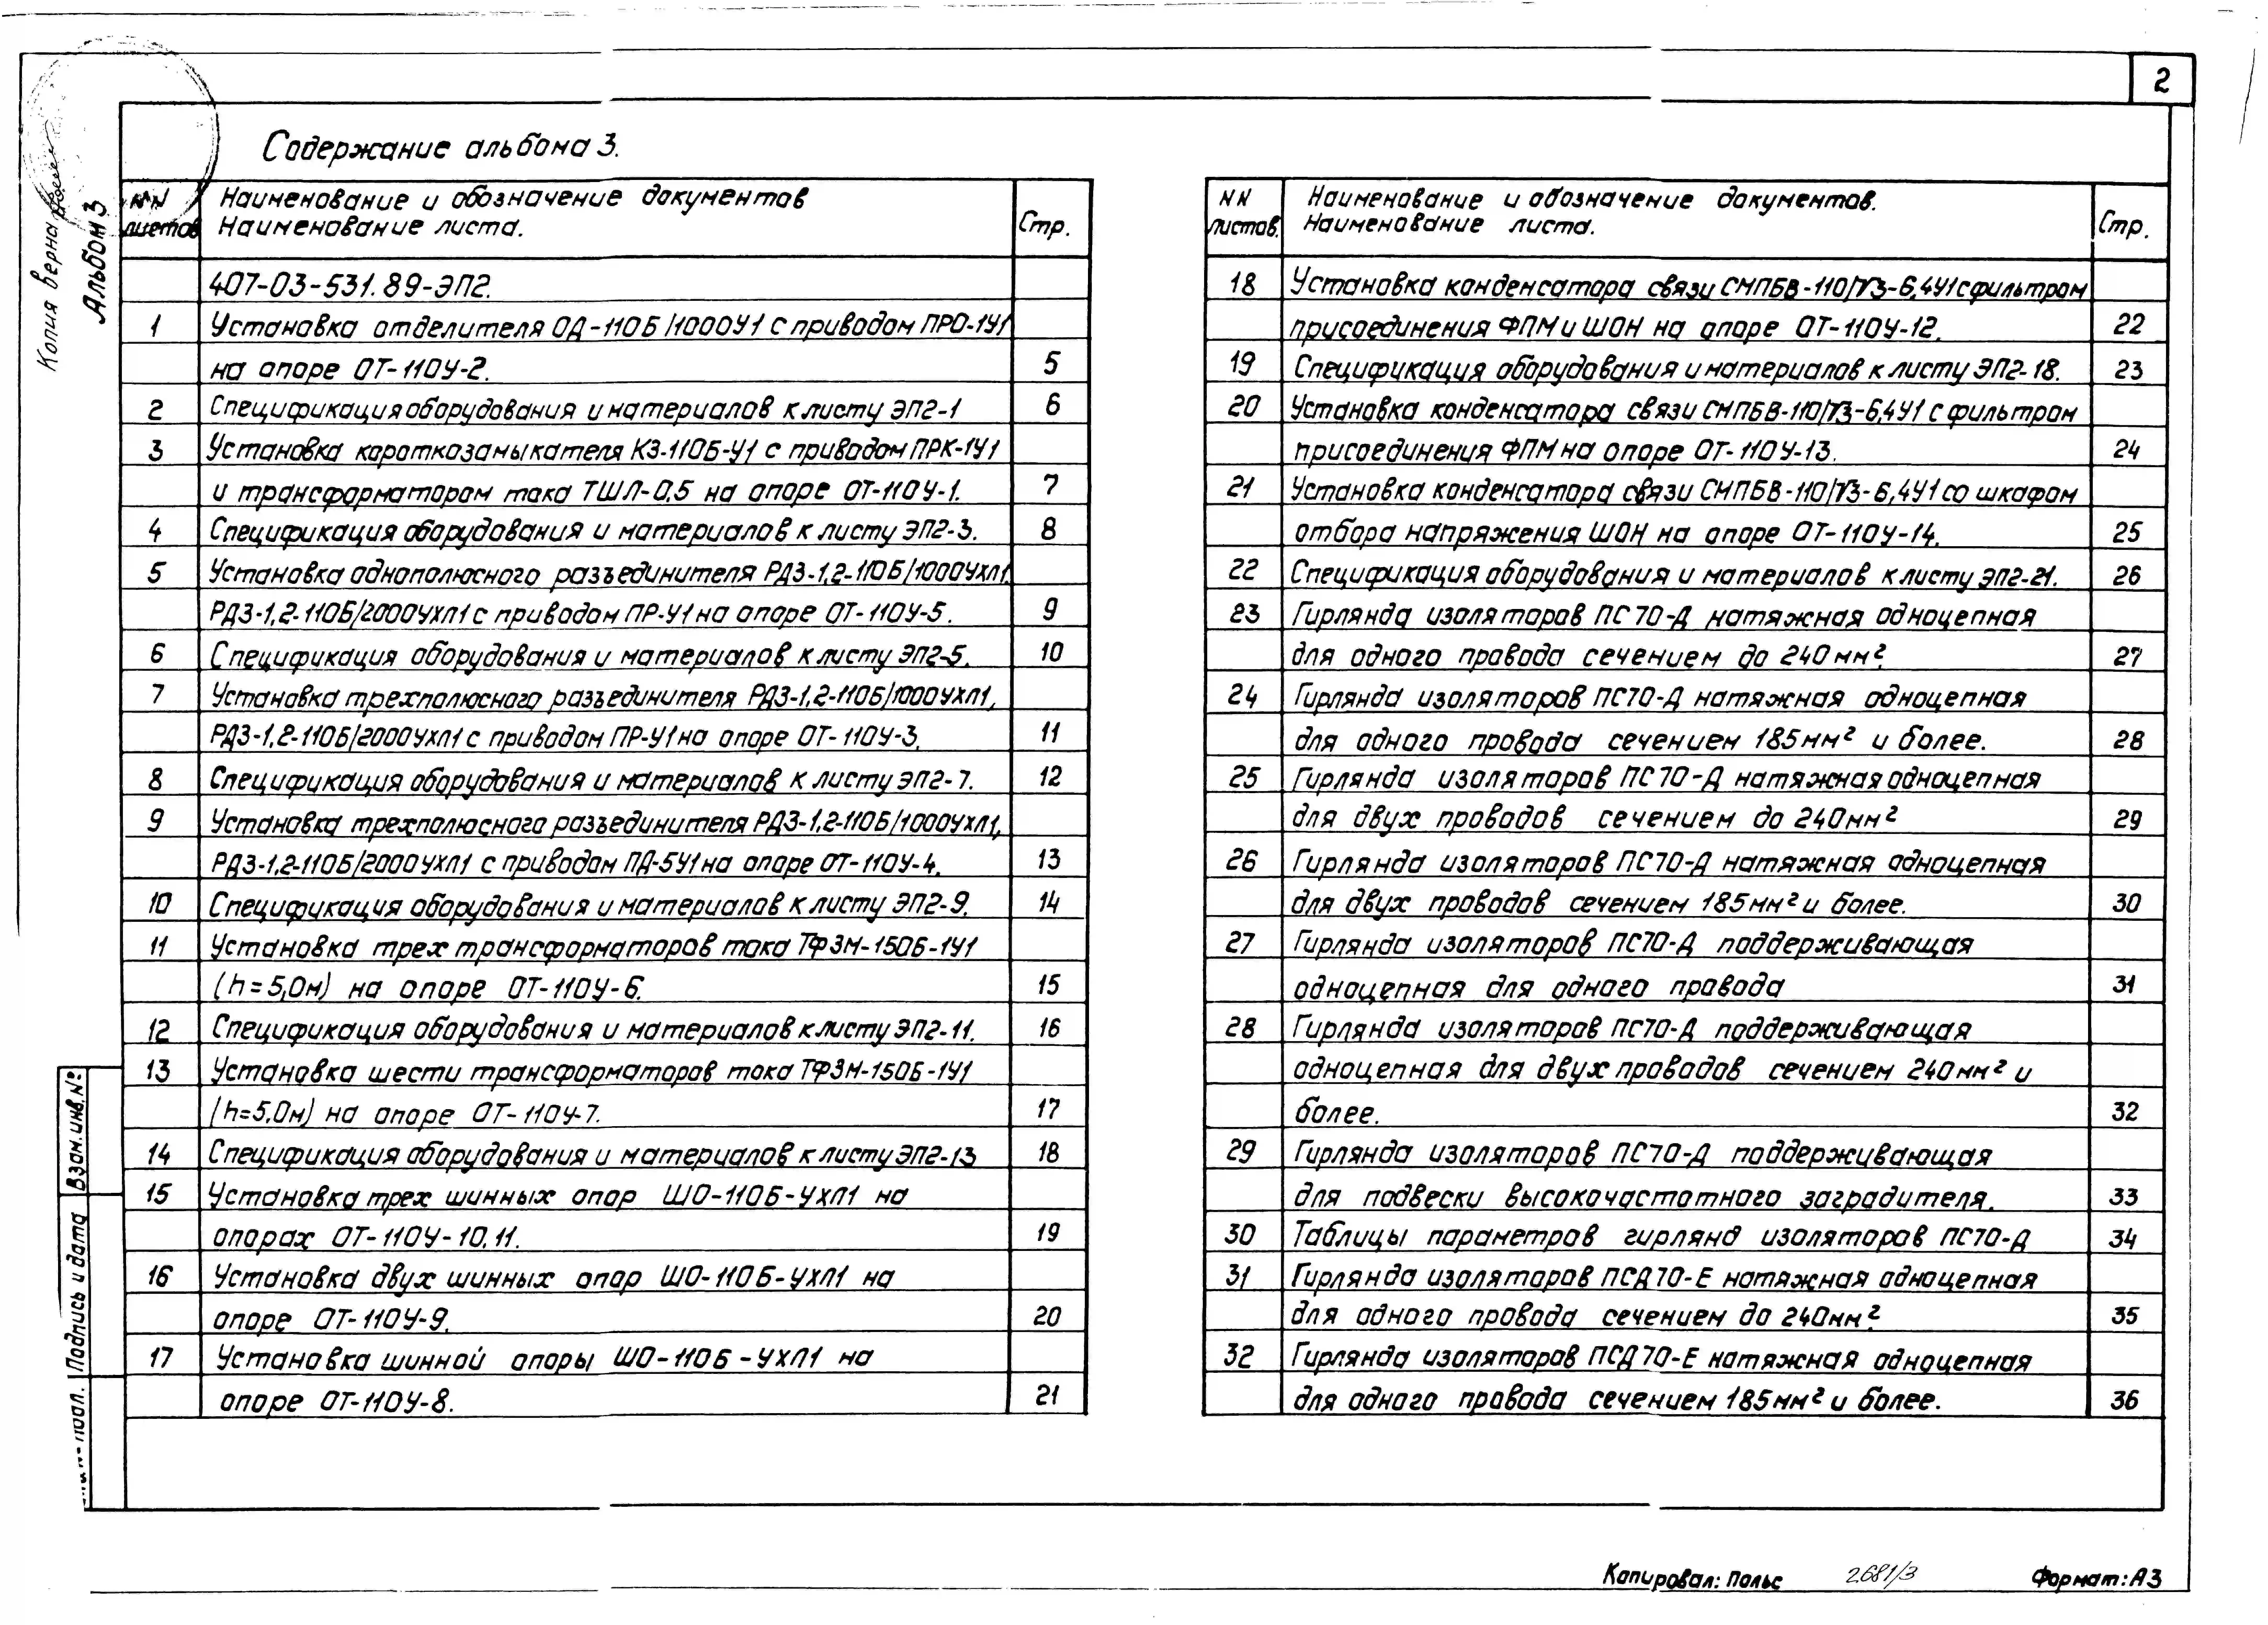 2
Содержание альбома 3.
Копия верна
Альбом 3
NN листов
Наименование и обозначение документов
Наименование листа.
Стр.
407-03-531.89-ЭП2.
1 Установка отделителя ОД-110Б/1000У1 с приводом ПРО-1У1
на опоре ОТ-110У-2. 5
2 Спецификация оборудования и материалов к листу ЭП2-1 6
3 Установка короткозамыкателя КЗ-110Б-У1 с приводом ПРК-1У1
и трансформатором тока ТШЛ-0,5 на опоре ОТ-110У-1. 7
4 Спецификация оборудования и материалов к листу ЭП2-3. 8
5 Установка однополюсного разъединителя РДЗ-1,2-110Б/1000УХЛ1,
РДЗ-1,2-110Б/2000УХЛ1 с приводом ПР-У1 на опоре ОТ-110У-5. 9
6 Спецификация оборудования и материалов к листу ЭП2-5. 10
7 Установка трехполюсного разъединителя РДЗ-1,2-110Б/1000УХЛ1,
РДЗ-1,2-110Б/2000УХЛ1 с приводом ПР-У1 на опоре ОТ-110У-3. 11
8 Спецификация оборудования и материалов к листу ЭП2-7. 12
9 Установка трехполюсного разъединителя РДЗ-1,2-110Б/1000УХЛ1,
РДЗ-1,2-110Б/2000УХЛ1 с приводом ПД-5У1 на опоре ОТ-110У-4. 13
10 Спецификация оборудования и материалов к листу ЭП2-9. 14
11 Установка трех трансформаторов тока ТФЗМ-150Б-1У1
(h=5,0м) на опоре ОТ-110У-6. 15
12 Спецификация оборудования и материалов к листу ЭП2-11. 16
13 Установка шести трансформаторов тока ТФЗМ-150Б-1У1
(h=5,0м) на опоре ОТ-110У-7. 17
14 Спецификация оборудования и материалов к листу ЭП2-13 18
15 Установка трех шинных опор ШО-110Б-УХЛ1 на
опорах ОТ-110У-10.11. 19
16 Установка двух шинных опор ШО-110Б-УХЛ1 на
опоре ОТ-110У-9. 20
17 Установка шинной опоры ШО-110Б-УХЛ1 на
опоре ОТ-110У-8. 21
NN листов.
Наименование и обозначение документов.
Наименование листа.
Стр.
18 Установка конденсатора связи СМПБВ-110/√3-6,4У1 с фильтром
присоединения ФПМ и ШОН на опоре ОТ-110У-12. 22
19 Спецификация оборудования и материалов к листу ЭП2-18. 23
20 Установка конденсатора связи СМПБВ-110/√3-6,4У1 с фильтром
присоединения ФПМ на опоре ОТ-110У-13. 24
21 Установка конденсатора связи СМПБВ-110/√3-6,4У1 со шкафом
отбора напряжения ШОН на опоре ОТ-110У-14. 25
22 Спецификация оборудования и материалов к листу ЭП2-21. 26
23 Гирлянда изоляторов ПС70-Д натяжная одноцепная
для одного провода сечением до 240мм². 27
24 Гирлянда изоляторов ПС70-Д натяжная одноцепная
для одного провода сечением 185мм² и более. 28
25 Гирлянда изоляторов ПС70-Д натяжная одноцепная
для двух проводов сечением до 240мм² 29
26 Гирлянда изоляторов ПС70-Д натяжная одноцепная
для двух проводов сечением 185мм² и более. 30
27 Гирлянда изоляторов ПС70-Д поддерживающая
одноцепная для одного провода 31
28 Гирлянда изоляторов ПС70-Д поддерживающая
одноцепная для двух проводов сечением 240мм² и
более. 32
29 Гирлянда изоляторов ПС70-Д поддерживающая
для подвески высокочастотного заградителя. 33
30 Таблицы параметров гирлянд изоляторов ПС70-Д 34
31 Гирлянда изоляторов ПСД70-Е натяжная одноцепная
для одного провода сечением до 240мм². 35
32 Гирлянда изоляторов ПСД70-Е натяжная одноцепная
для одного провода сечением 185мм² и более. 36
Взам.инв.№
Подпись и дата
подл.
Копировал: Польс
2681/3
Формат: А3